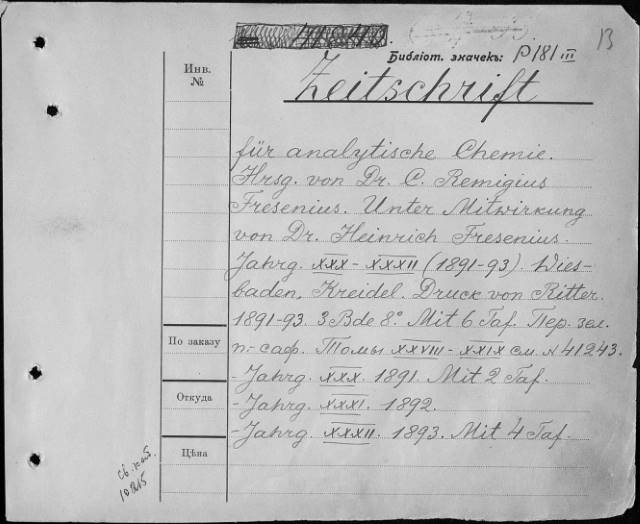 13
Библіот. значекъ: P181 III
Инв. №
Zeitschrift
für analytische Chemie.
Hrsg. von Dr. C. Remigius
Fresenius. Unter Mitwirkung
von Dr. Heinrich Fresenius.
Jahrg. XXX-XXXII (1891-93). Wies-
baden, Kreidel. Druck von Ritter.
1891-93. 3 Bde 8° Mit 6 Taf. Пер. зел.
п.- саф. Томы XXVIII-XXIX см. N 41243.
По заказу
-Jahrg. XXX. 1891. Mit 2 Taf.
Откуда
-Jahrg. XXXI. 1892.
-Jahrg. XXXII. 1893. Mit 4 Taf.
Цѣна